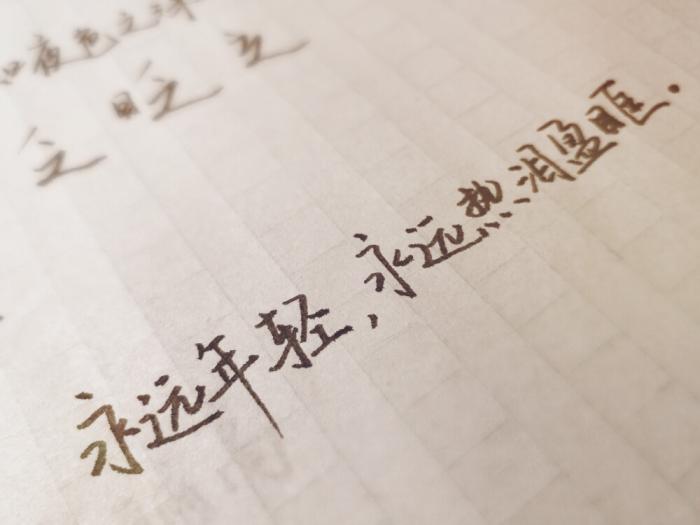 夜色之
之 眨 之
永远年轻,永远热泪盈眶.